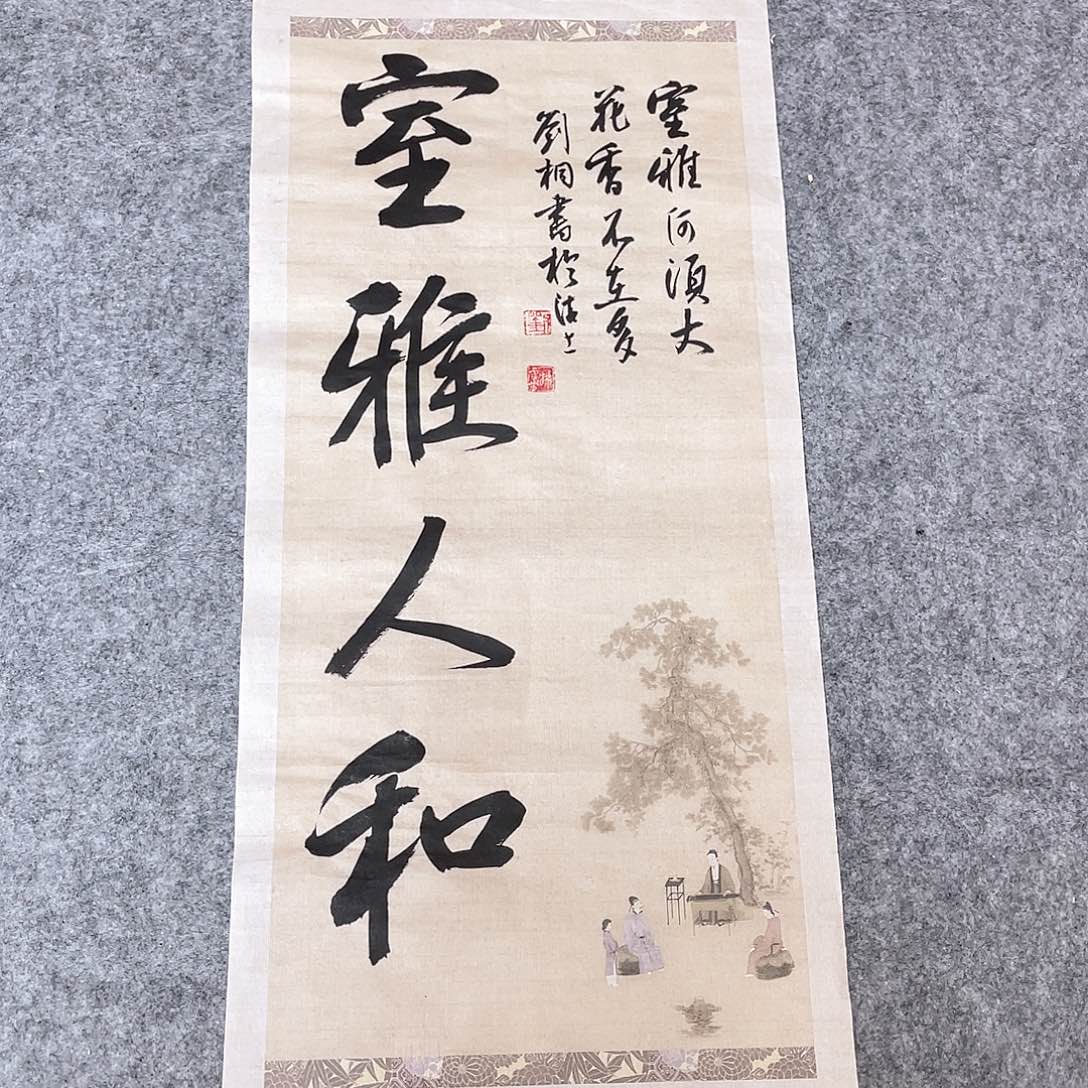 室雅何須大
花香不在多
劉桐書於沽上
室雅人和